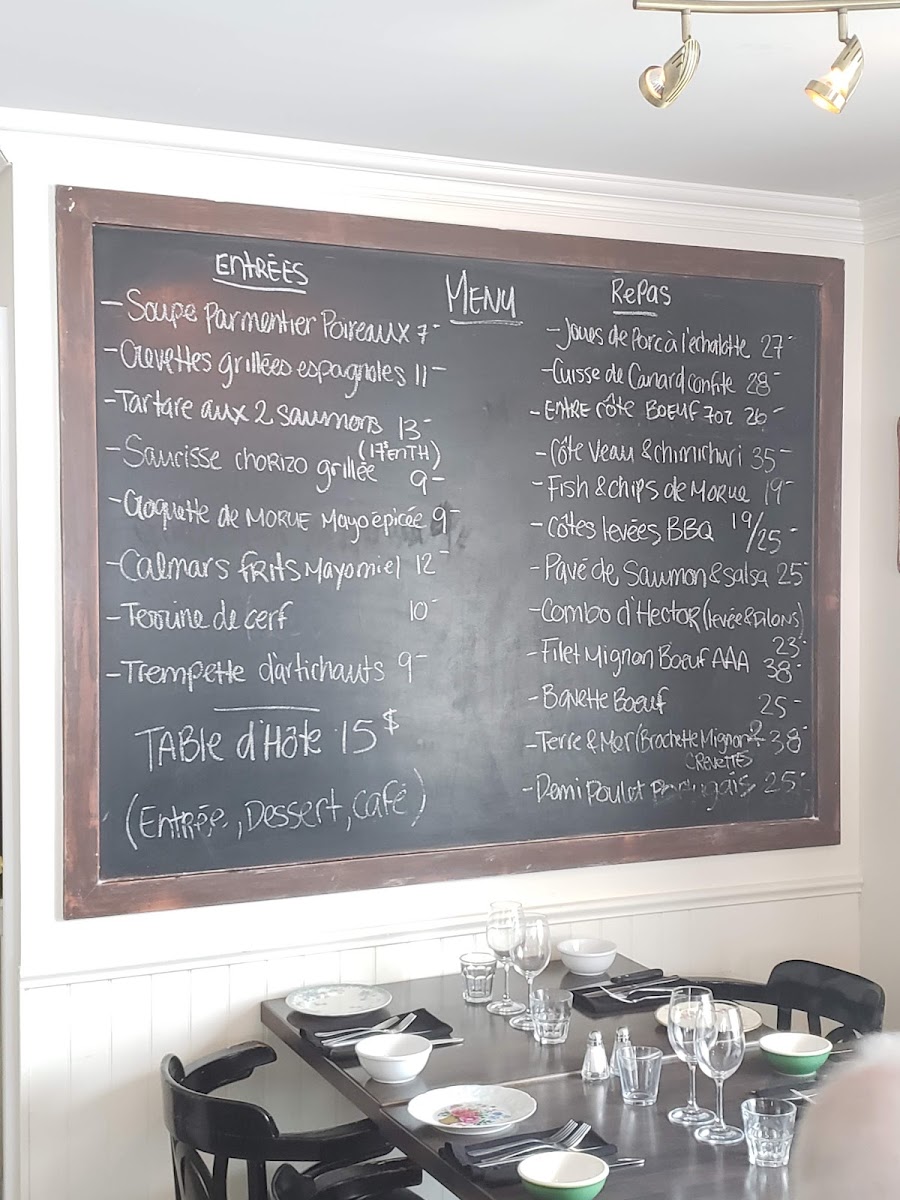 MENU
ENTRÉES
- Soupe Parmentier Poireaux 7-
- Crevettes grillées espagnoles 11-
- Tartare aux 2 saumons 13-
(17$ en TH)
- Saucisse chorizo grillée 9-
- Croquette de MORUE Mayo épicée 9-
- Calmars FRITS Mayo miel 12-
- Terrine de cerf 10-
- Trempette d'artichauts 9-
TABLE d'Hôte 15$
(Entrée, Dessert, Café)
RePas
- Joues de Porc à l'échalotte 27-
- Cuisse de Canard confite 28-
- ENTRE côte BOEUF 7oz 26-
- Côte Veau & chimichuri 35-
- Fish & chips de Morue 19-
- Côtes levées BBQ 19/25-
- Pavé de Saumon & salsa 25-
- Combo d'Hector (levée & Pilons)
23-
- Filet Mignon Boeuf AAA 38-
- Bavette Boeuf 25-
- Terre & Mer (Brochette Mignon + 2 38-
CREVETTES
- Demi Poulet Portugais 25-